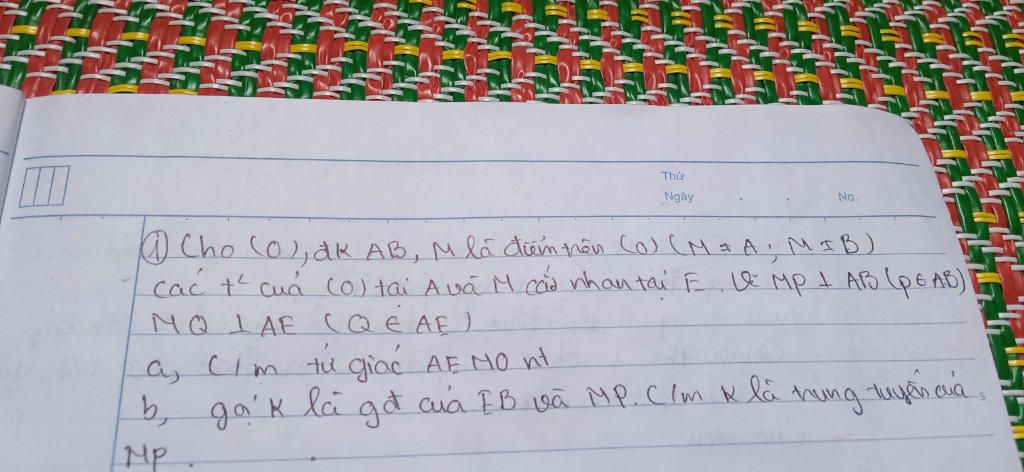 Thứ
Ngày . . No.
① Cho (O), đk AB, M là điểm trên (O) (M ≠ A; M ≠ B)
các t² của (O) tại A và M cắt nhau tại E. Vẽ MP ⊥ AB (P ∈ AB)
MQ ⊥ AE (Q ∈ AE)
a, C/m tứ giác AEMO nt
b, gọi K là gđ của EB và MP. C/m K là trung tuyến của
MP.